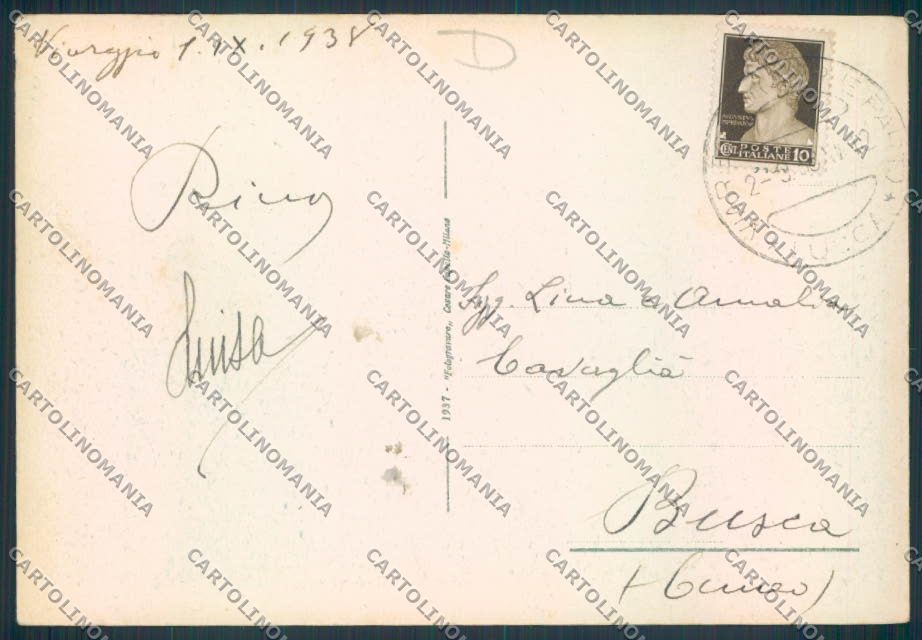 Viareggio 1. IX. 1938
D
Rino
Luisa
1937 - "Fotogravure„ Cesare Milano
AVGVSTVS
IMPERATOR
CENT. POSTE ITALIANE 10
LUCCA
Sigg. Lina e Amalia
Cavaglià
Busca
(Cuneo)
CARTOLINOMANIA